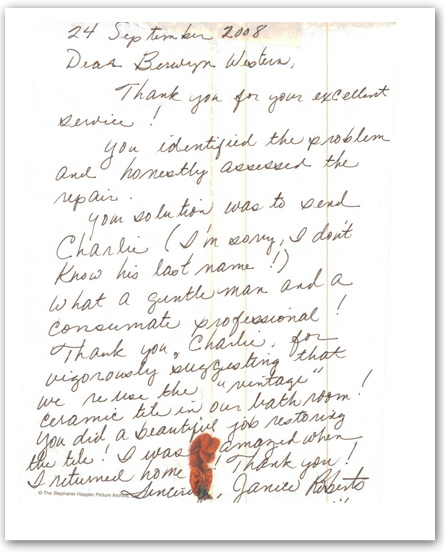 24 September 2008
Dear Berwyn Western,
Thank you for your excellent
service!
You identified the problem
and honestly assessed the
repair.
Your solution was to send
Charlie (I'm sorry, I don't
know his last name!)
What a gentleman and a
consumate professional!
Thank you, Charlie, for
vigorously suggesting that
we reuse the "vintage"
ceramic tile in our bathroom!
You did a beautiful job restoring
the tile! I was amazed when
I returned home! Thank you!
© The Stephanie Hoppen Picture Archive
Janice Roberts